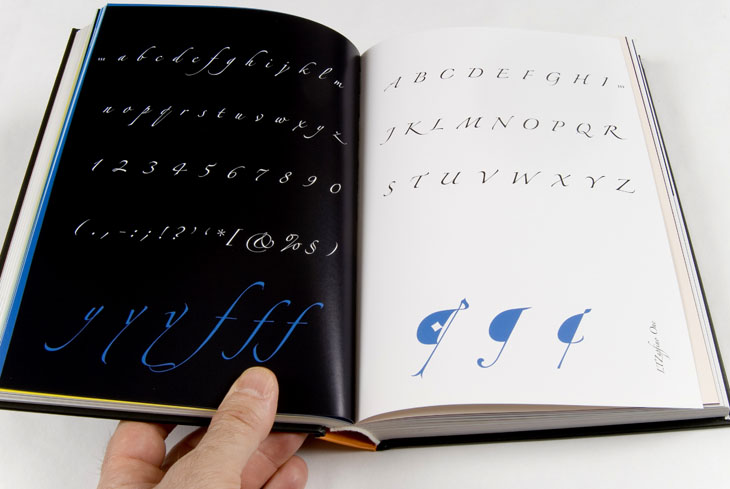 a b c d e f g h i j k l m
n o p q r s t u v w x y z
1 2 3 4 5 6 7 8 9 0
( . , - : ; ! ? ' ‘ * [ & % § )
y y y f f f
A B C D E F G H I
J K L M N O P Q R
S T U V W X Y Z
¶ ¶ ¢
One